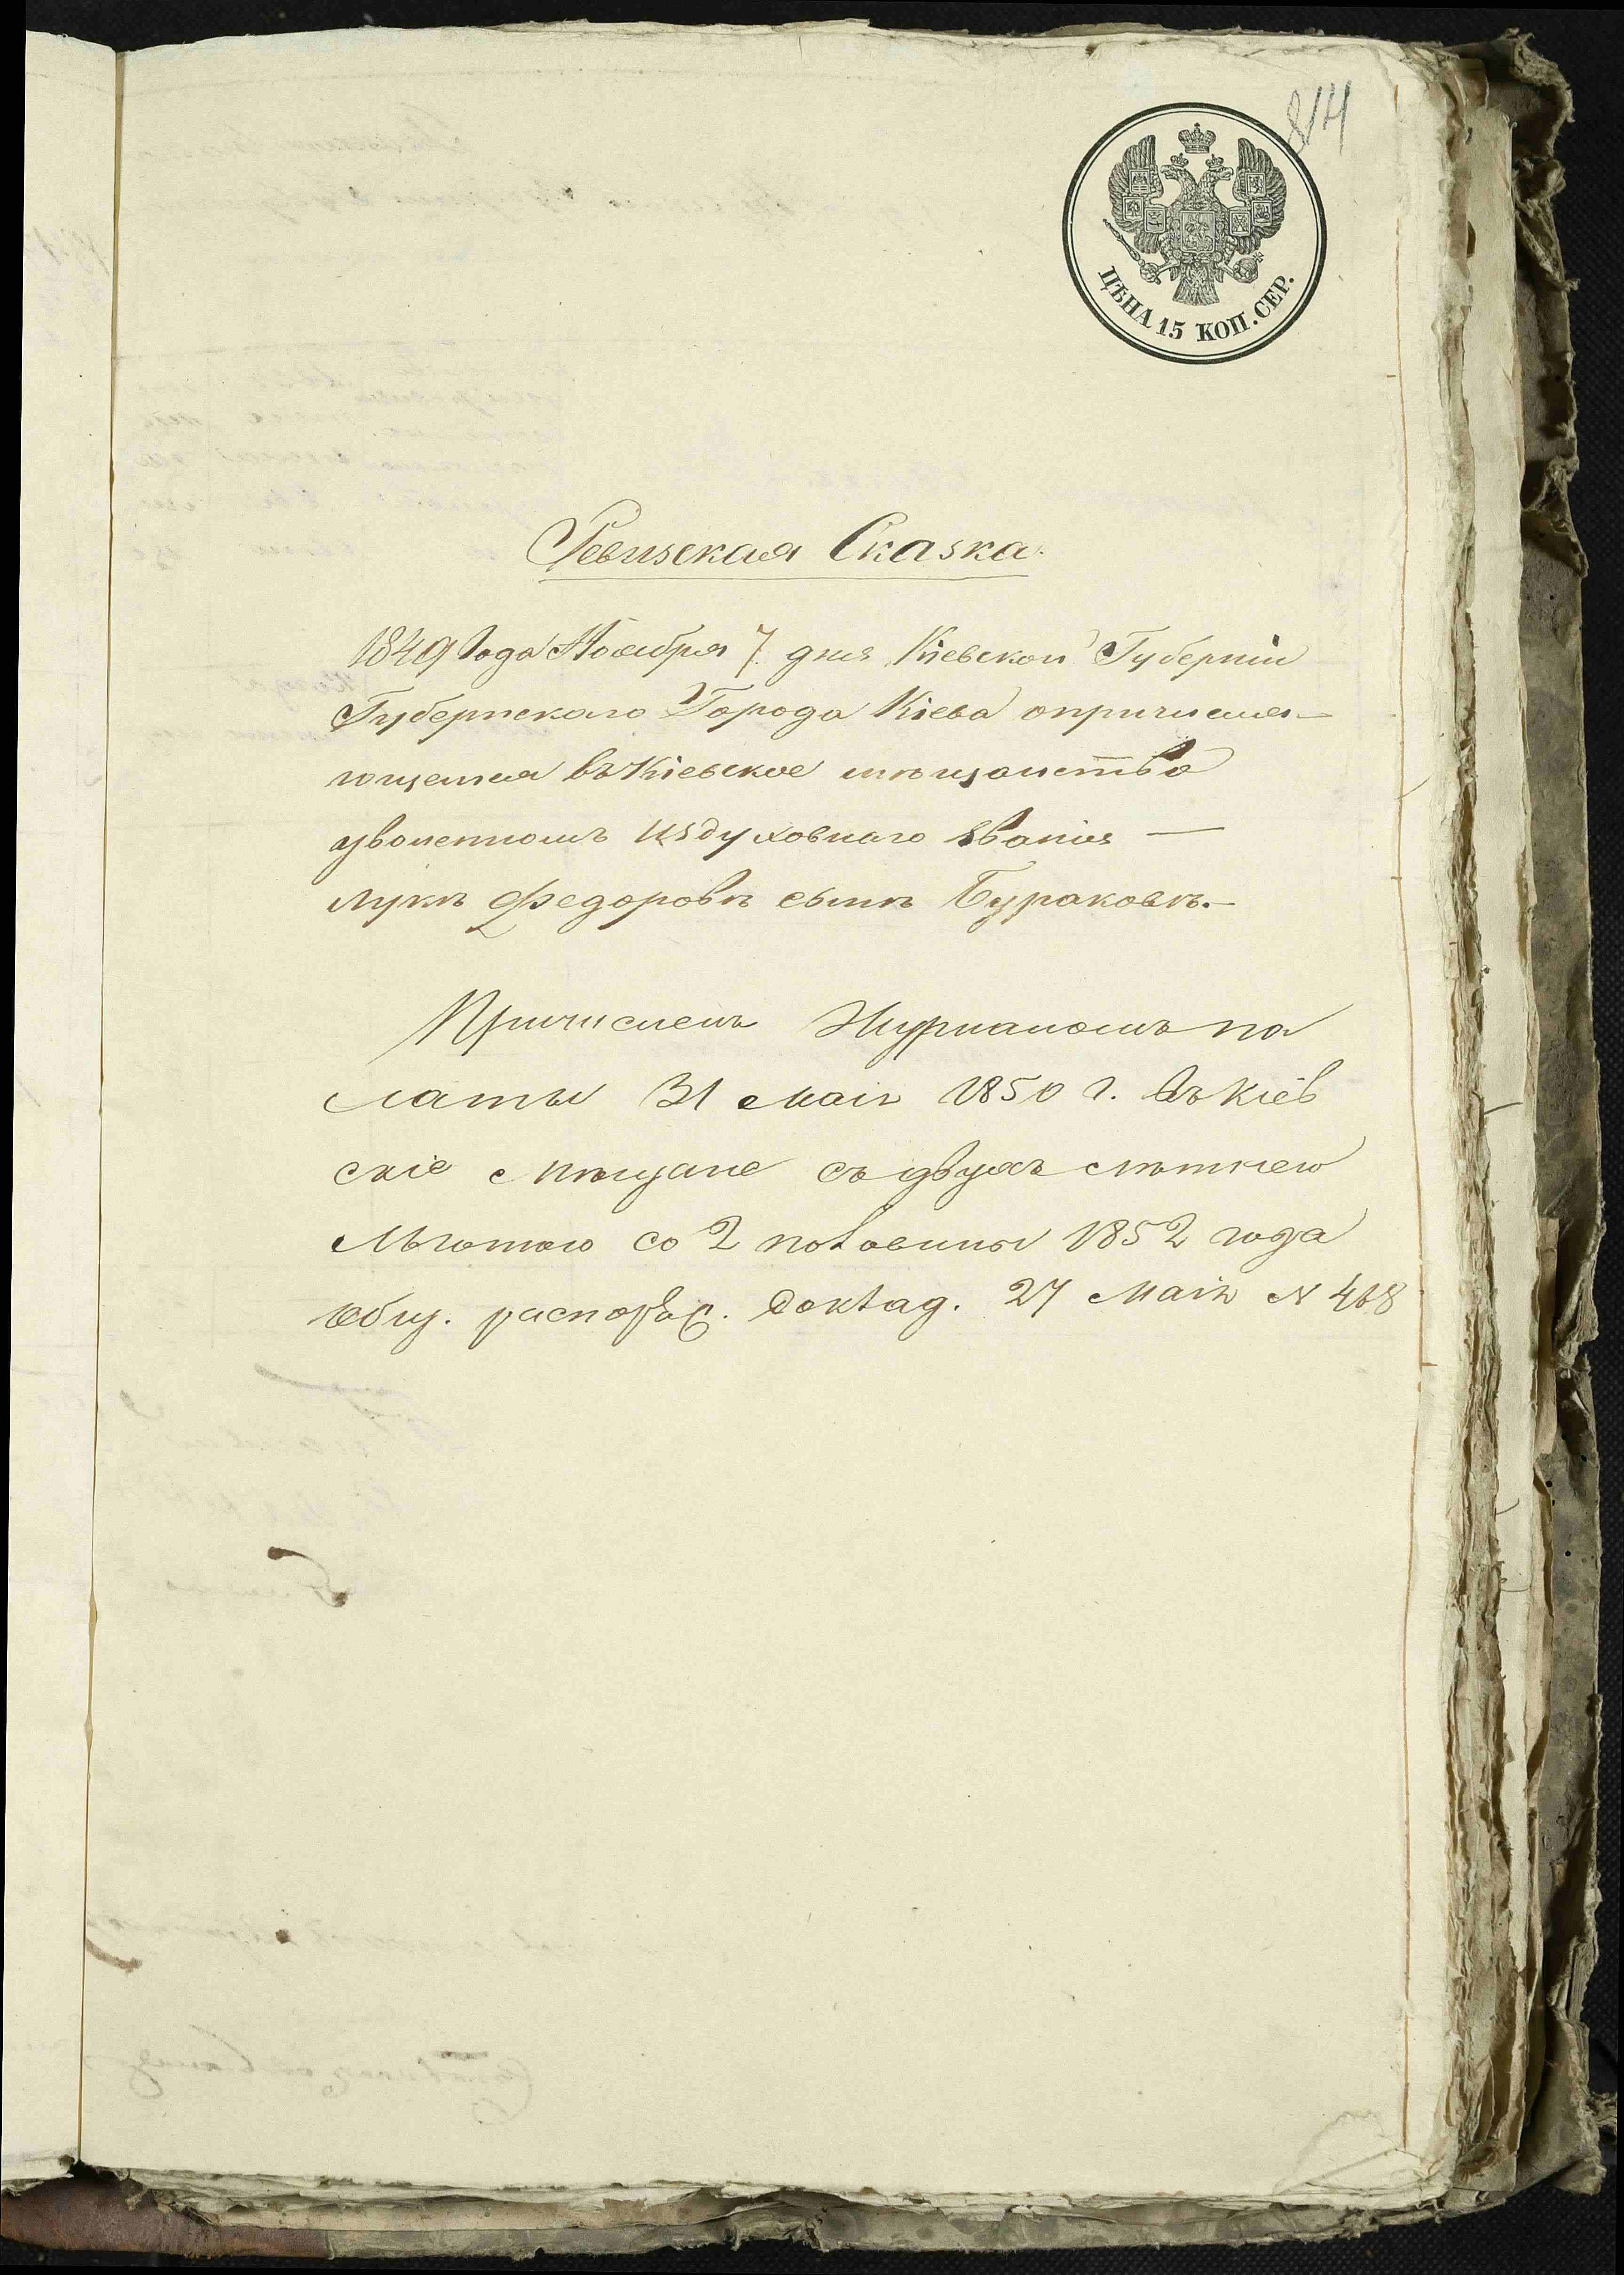 814
ЦѢНА 15 КОП. СЕР.
Ревизская Сказка.
1849 Года Ноября 7 дня Кіевской Губерніи
Губернскаго Города Кіева опричисля-
ющемся въ Кіевское мѣщанство
уволенномъ изъ духовнаго званія —
Лукѣ Федоровѣ сынѣ Бураковѣ.—
Причисленъ Журналомъ па
латы 31 Маія 1850 г. въ Кіев
скіе Мѣщане съ двухъ лѣтнею
Льготою со 2 половины 1852 года
Общ. распоряд. Доклад. 27 Маія N 468